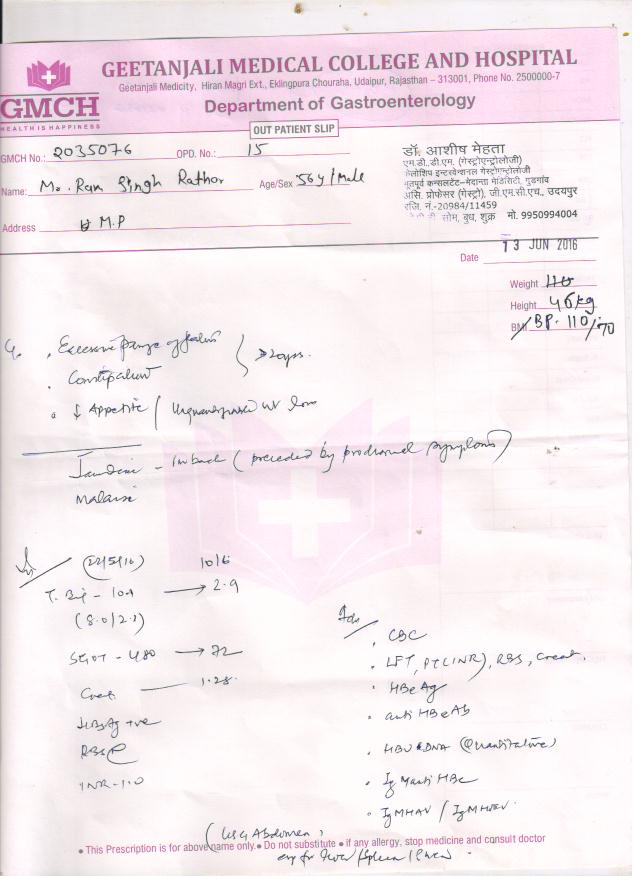 GEETANJALI MEDICAL COLLEGE AND HOSPITAL
Geetanjali Medicity, Hiran Magri Ext., Eklingpura Chouraha, Udaipur, Rajasthan – 313001, Phone No. 2500000-7
GMCH
HEALTH IS HAPPINESS
Department of Gastroenterology
OUT PATIENT SLIP
GMCH No.: 2035076 OPD. No.: 15
Name: Mr. Ram Singh Rathor Age/Sex 56y/Male
Address M.P
डॉ. आशीष मेहता
एम.डी.,डी.एम. (गेस्ट्रोएन्ट्रोलोजी)
फेलोशिप इन्टरवेन्शनल गेस्ट्रोएन्ट्रोलोजी
भूतपूर्व कन्सलटेंट–मेदान्ता मेडिसिटी, गुड़गांव
असि. प्रोफेसर (गेस्ट्रो), जी.एम.सी.एच., उदयपुर
रजि. नं.-20984/11459
सोम, बुध, शुक्र मो. 9950994004
Date 13 JUN 2016
Weight
Height 46kg
BMI BP. 110/70
Excessive passage of flatus
Constipation
↓ Appetite /
Jaundice - (preceded by prodromal symptoms)
Malaise
10/6
T. Bil - → 2.9
SGOT - 480 → 72
Creat 1.28
HBsAg +ve
INR - 1.0
Adv
CBC
LFT, PT(INR), RBS, Creat.
HBeAg
anti HBeAb
HBV DNA (Quantitative)
IgM anti HBc
IgM HAV / IgM HEV
(USG Abdomen,
• This Prescription is for above name only. • Do not substitute • if any allergy, stop medicine and consult doctor